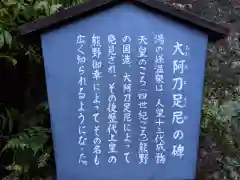 大阿刀足尼の碑
湯の峰温泉は、人皇十三代成務
天皇のころ(四世紀ごろ)熊野
の国造、大阿刀足尼によって
発見され、その後歴代上皇の
熊野御幸によってその名も
広く知られるようになった。